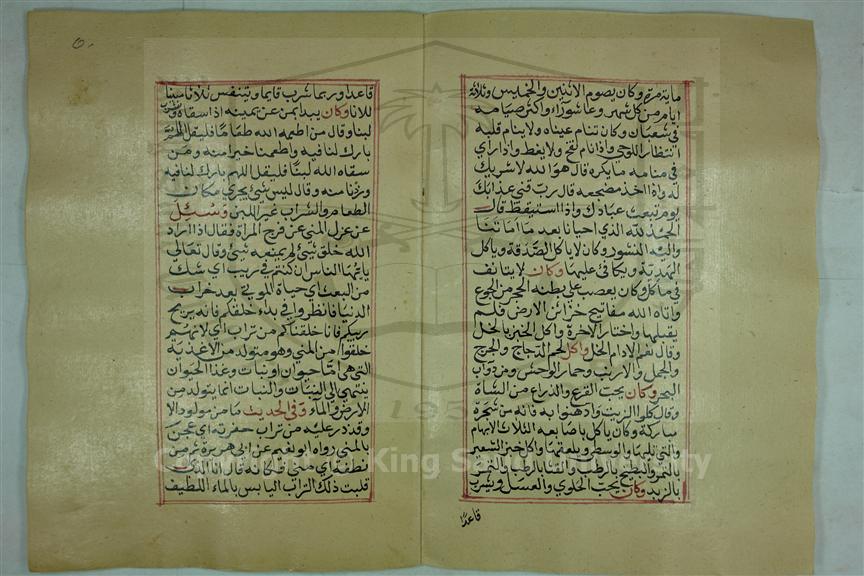 ماية مرة وكان يصوم الاثنين والخميس وثلاثة
ايام من كل شهر وعاشوراء واكثر صيامه
في شعبان وكان تنام عيناه ولا ينام قلبه
انتظار اللوحي واذا نام نفخ ولا يغط واذا راي
في منامه ما يكره قال هو الله لا شريك
له واذا اخذ مضجعه قال رب قني عذابك
يوم تبعث عبادك واذا استيقظ قال
الحمد لله الذي احيانا بعد ما اماتنا
واليه النشور وكان لا ياكل الصدقة وياكل
الهدية ويكافي عليها وكان لا يتانف
في ماكل وكان يعصب على بطنه الحجر من الجوع
واتاه الله مفاتيح خزائن الارض فلم
يقبلها واختار الاخرة واكل الخبز بالخل
وقال نعم الادام الخل واكل لحم الدجاج
والجمل والارنب وحمار الوحش ومن دواب
البحر وكان يحب القرع والذراع من الشاة
وقال كلوا الزيت وادهنوا به فانه من شجرة
مباركة وكان ياكل باصابعه الثلاث الابهام
والتي تليها والوسطى ويلعقها واكل خبز الشعير
بالتمر والبطيخ بالرطب والقثا بالرطب والتمر
بالزبد وكان يحب الحلوي والعسل ويشرب
قاعدا
قاعدا وربما شرب قايما ويتنفس ثلاثا مبينا
للانا وكان يبدا بمن عن يمينه اذا سقاه
لبنا وقال من اطعمه الله طعاما فليقل اللهم
بارك لنا فيه واطعمنا خيرا منه ومن
سقاه الله لبنا فليقل اللهم بارك لنا فيه
وزدنا منه وقال ليس شيئ يجزي مكان
الطعام والشراب غير اللبن وسئل
عن عزل المني عن فرج المراة فقال اذا اراد
الله خلق شيئ لم يمنعه شيئ وقال تعالى
يايها الناس ان كنتم في ريب اي شك
من البعث اي حياة الموتى بعد خراب
الدنيا فانظروا في بدء خلقكم فانه يزيح
ريبكم فانا خلقناكم من تراب اي لانهم
خلقوا من المني وهو متولد من الاغذية
التي هي اما حيوان او نبات وغذا الحيوان
ينتهي الى النبات والنبات انما يتولد من
الارض والماء وفي الحديث ما من مولود الا
وقد ذر عليه من تراب حفرته اي عجن
بالمني رواه ابو نعيم عن ابي هريرة ثم من
نطفة اي مني
قلبت ذلك التراب اليابس بالماء اللطيف
Copyright © King Saud University
195